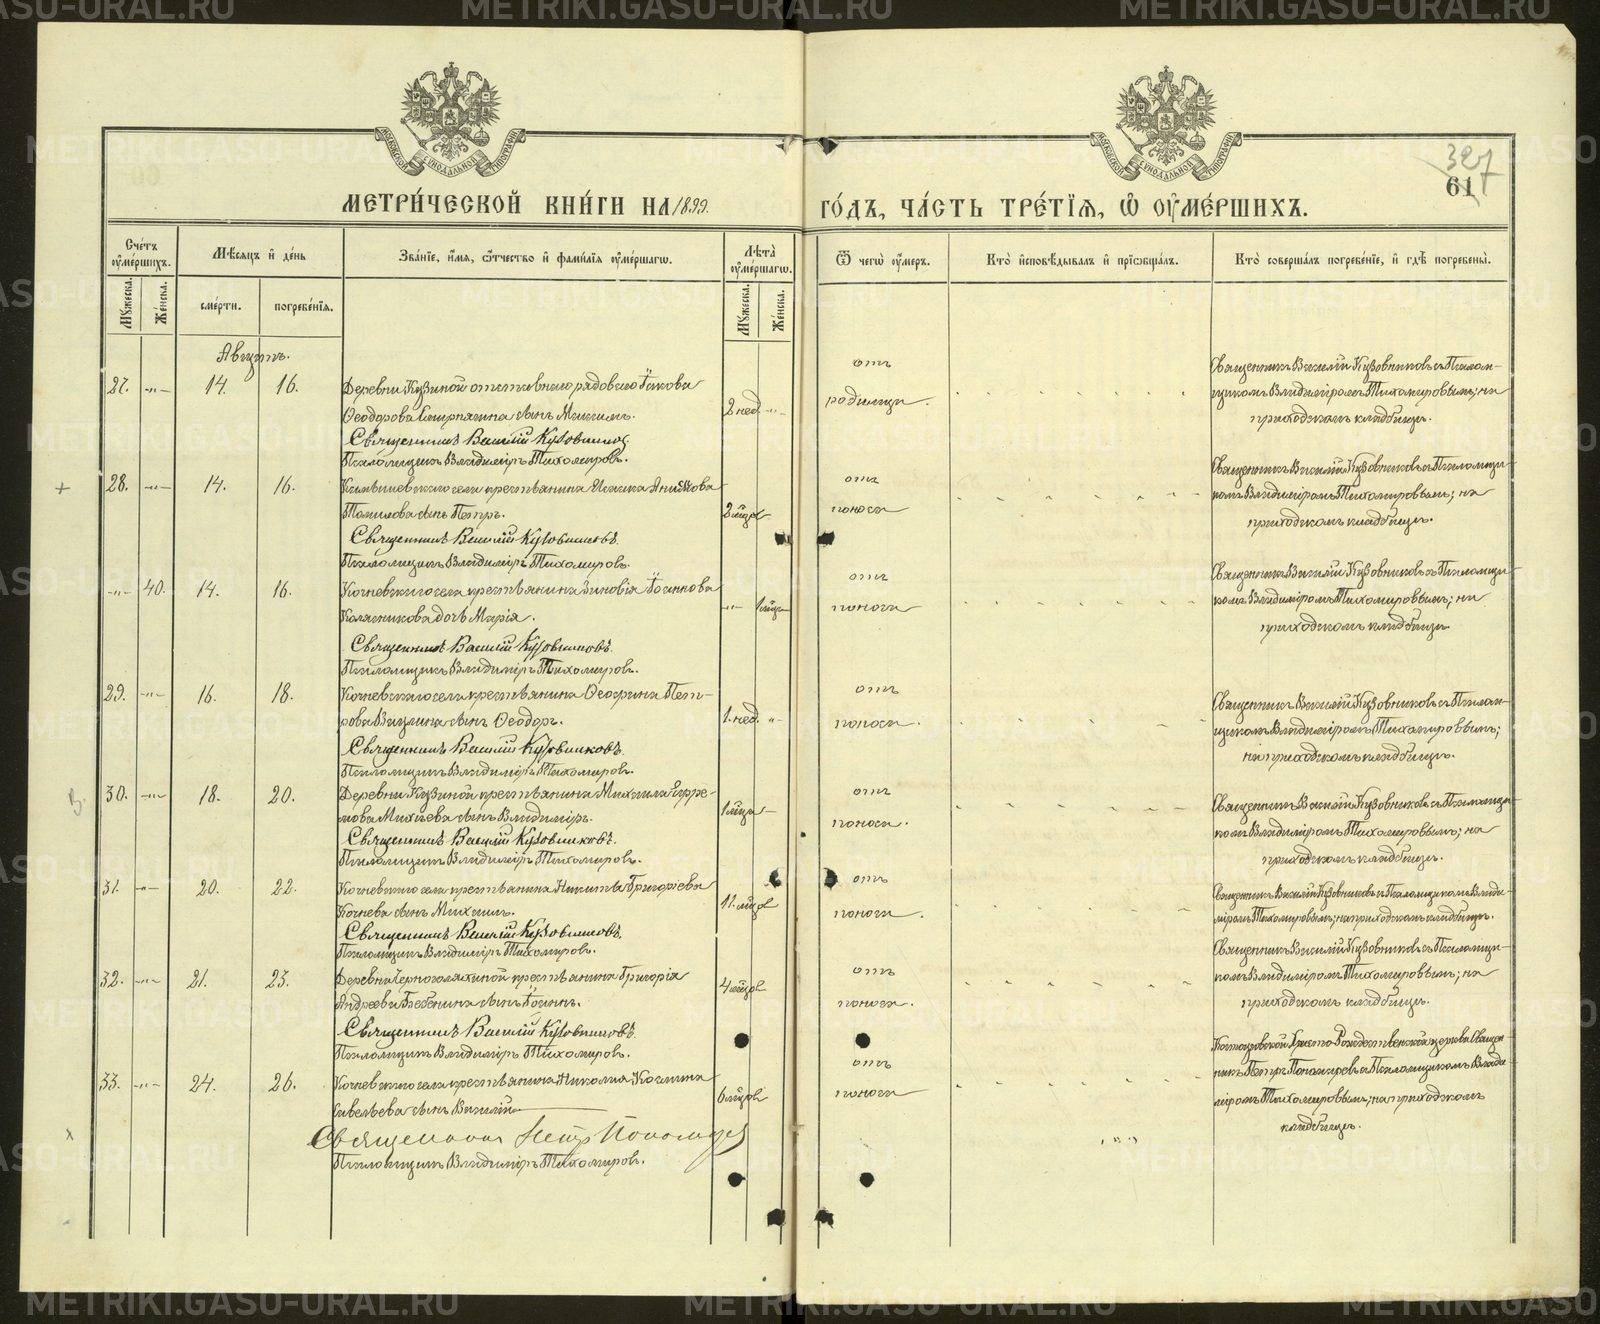 METRIKI.GASU-URAL.RU
327
61
МЕТРИ́ЧЕСКОЙ КНИ́ГИ НА 1899.
ГО́ДЪ, ЧА́СТЬ ТРЕ́ТІЯ, Ѿ ОУМЕ́РШИХЪ.
Сче́тъ оуме́ршихъ.
Мꙋжеска.
Же́нска.
Мѣ́сяцъ и де́нь
сме́рти.
погребе́нїя.
Зва́нїе, и́мя, ѻ҆́тчество и фами́лїя оуме́ршагѡ.
Лѣ́та оуме́ршагѡ.
Мꙋжеска.
Же́нска.
Ѿ чегѡ̀ оу́меръ.
Кто̀ и҆сповѣ́дывалъ и прїѡбща́лъ.
Кто̀ соверша́лъ погребе́нїе, и гдѣ̀ погребены̀.
Августъ.
27. 14. 16.
Деревни Кузиной отставного рядового Іакова
Ѳеодорова сынъ Максимъ.
Священникъ Василій Кузовниковъ
Псаломщикъ Владиміръ Тихомировъ.
2 нед.
отъ
родимца.
Священникъ Василій Кузовниковъ съ Псалом-
щикомъ Владиміромъ Тихомировымъ; на
приходскомъ кладбищѣ.
28. 14. 16.
села крестьянина
сынъ Петръ.
Священникъ Василій Кузовниковъ.
Псаломщикъ Владиміръ Тихомировъ.
2 мѣс.
отъ
поноса
Священникъ Василій Кузовниковъ съ Псаломщи-
комъ Владиміромъ Тихомировымъ; на
приходскомъ кладбищѣ.
40. 14. 16.
Кочневскаго села крестьянина Зиновія
дочь Марія.
Священникъ Василій Кузовниковъ.
Псаломщикъ Владиміръ Тихомировъ.
отъ
поноса
Священникъ Василій Кузовниковъ съ Псаломщи-
комъ Владиміромъ Тихомировымъ; на
приходскомъ кладбищѣ
29. 16. 18.
Кочневскаго села крестьянина Пет-
рова сынъ Ѳеодоръ.
Священникъ Василій Кузовниковъ.
Псаломщикъ Владиміръ Тихомировъ.
1. нед.
отъ
поноса.
Священникъ Василій Кузовниковъ съ Псалом-
щикомъ Владиміромъ Тихомировымъ;
на приходскомъ кладбищѣ.
В.
30. 18. 20.
Деревни Кузиной крестьянина Михаила Ефре-
мова Михѣева сынъ Владиміръ.
Священникъ Василій Кузовниковъ.
Псаломщикъ Владиміръ Тихомировъ.
отъ
поноса.
Священникъ Василій Кузовниковъ съ Псаломщи-
комъ Владиміромъ Тихомировымъ; на
приходскомъ кладбищѣ.
31. 20. 22.
Кочневскаго села крестьянина Никиты Григоріева
Кочнева сынъ Михаилъ.
Священникъ Василій Кузовниковъ.
Псаломщикъ Владиміръ Тихомировъ.
11.
отъ
поноса.
Священникъ Василій Кузовниковъ съ Псаломщикомъ Влади-
міромъ Тихомировымъ; на приходскомъ кладбищѣ.
32. 21. 23.
Деревни Черноголяхиной крестьянина Григорія
Андреева сынъ Іоаннъ.
Священникъ Василій Кузовниковъ
Псаломщикъ Владиміръ Тихомировъ.
4
отъ
поноса.
Священникъ Василій Кузовниковъ съ Псаломщи-
комъ Владиміромъ Тихомировымъ; на
приходскомъ кладбищѣ.
33. 24. 26.
Кочневскаго села крестьянина Николая
Савельева сынъ Василій
Священникъ Петръ Пономарев
Псаломщикъ Владиміръ Тихомировъ.
6
отъ
поноса
Христо-Рождественской церкви Священ-
никъ Петръ Пономаревъ съ Псаломщикомъ Влади-
міромъ Тихомировымъ; на приходскомъ
кладбищѣ.